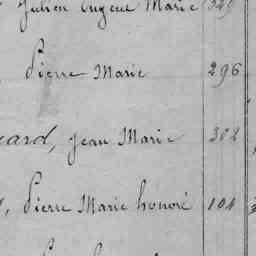 Julien Eugène Marie 329
Pierre Marie 296
card, Jean Marie 302
Pierre Marie honoré 104